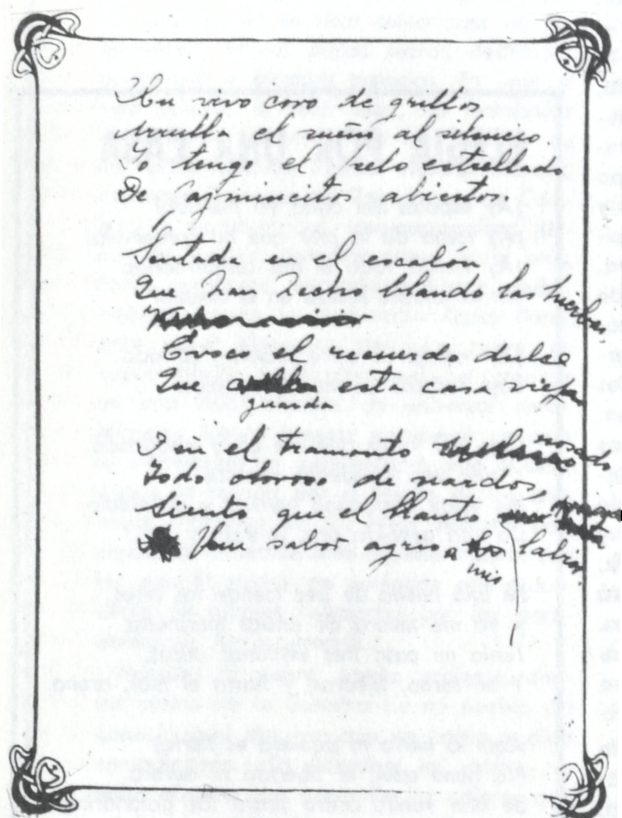 Un vivo coro de grillos
Arrulla el niño al silencio
Yo tengo el cielo estrellado
De jazmincitos abiertos.
Sentada en el escalón
Que han hecho blando las hierbas
Evoco el recuerdo dulce
Que guarda esta casa vieja
I en el tramonto rosado
Todo oloroso de nardos,
Siento que el
Vene a flor a mis labios